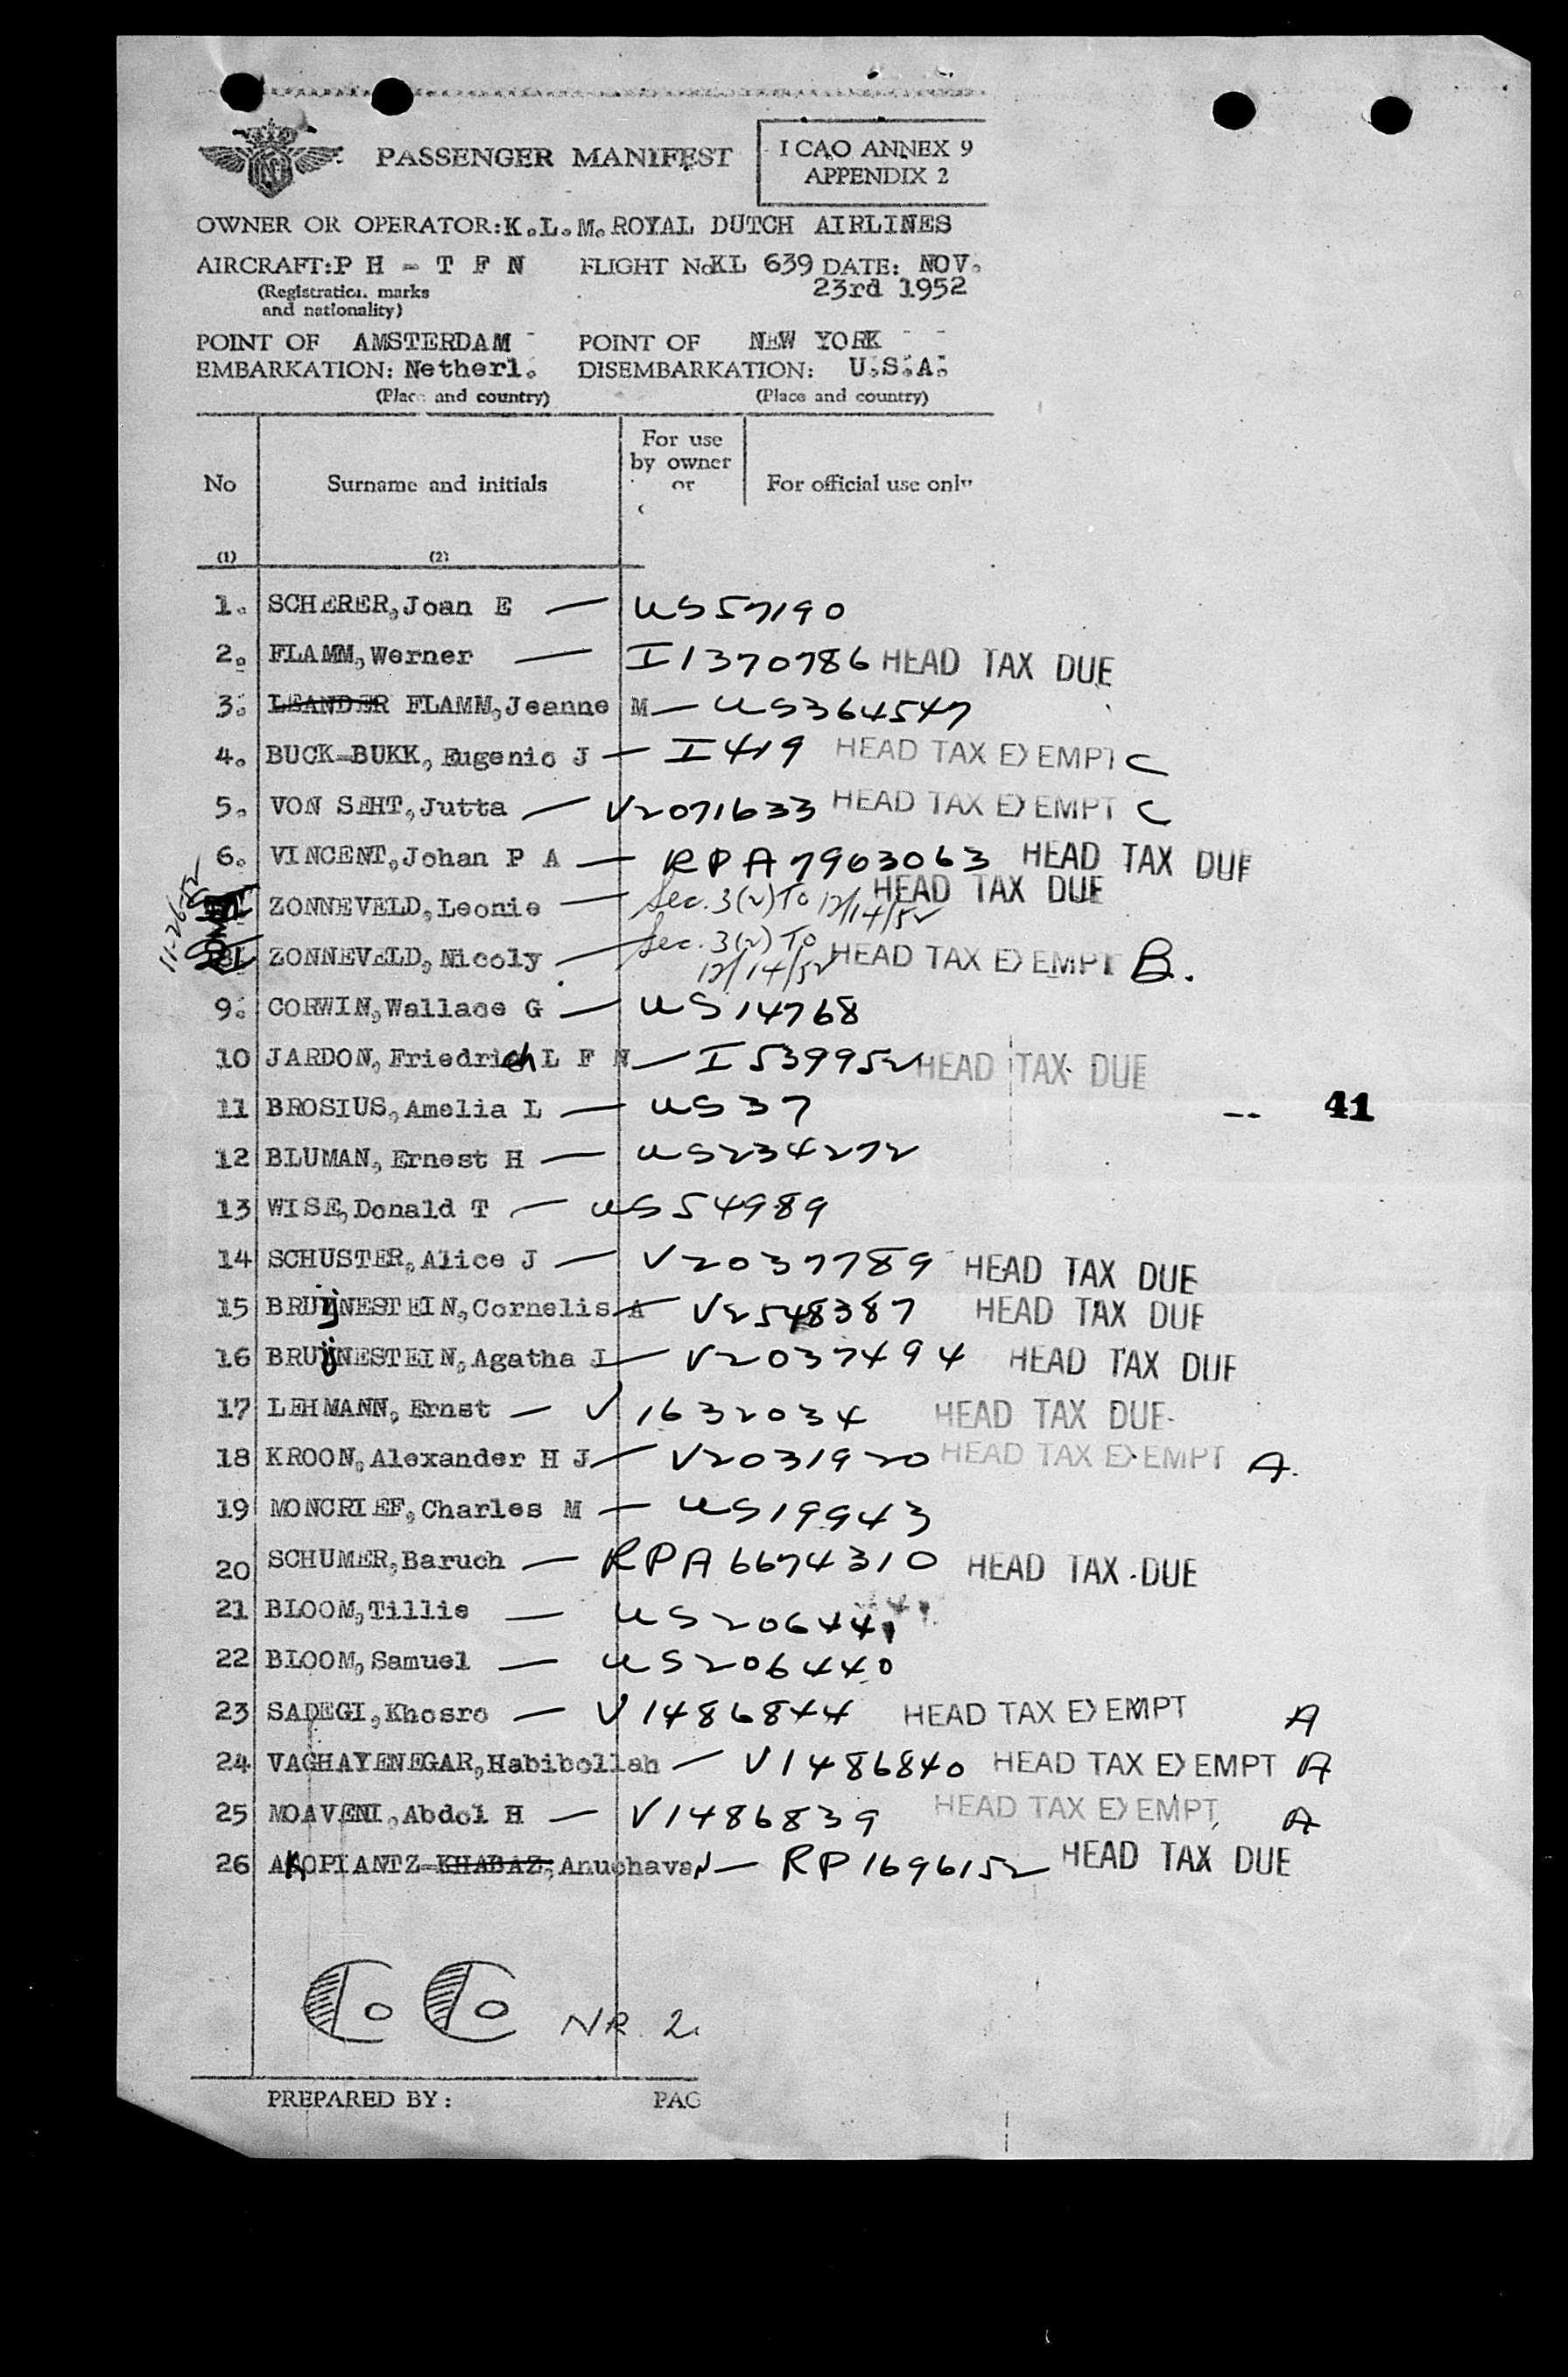 PASSENGER MANIFEST
I CAO ANNEX 9
APPENDIX 2
OWNER OR OPERATOR: K.L.M. ROYAL DUTCH AIRLINES
AIRCRAFT: P H - T F N FLIGHT No KL 639 DATE: NOV.
23rd 1952
(Registration marks
and nationality)
POINT OF AMSTERDAM POINT OF NEW YORK
EMBARKATION: Netherl. DISEMBARKATION: U.S.A.
(Place and country) (Place and country)
No Surname and initials For use by owner or For official use only
(1) (2)
1. SCHERER, Joan E — US 57190
2. FLAMM, Werner — I 1370786 HEAD TAX DUE
3. LEANDER FLAMM, Jeanne M — US 364547
4. BUCK-BUKK, Eugenio J — I 419 HEAD TAX EXEMPT C
5. VON SEHT, Jutta — V2071633 HEAD TAX EXEMPT C
6. VINCENT, Johan P A — RPA 7903063 HEAD TAX DUE
11-26-52
ZONNEVELD, Leonie — Sec. 3(2) To 12/14/52 HEAD TAX DUE
ZONNEVELD, Nicoly — Sec. 3(2) To 12/14/52 HEAD TAX EXEMPT B.
9. CORWIN, Wallace G — US 14768
10 JARDON, Friedrich L F N — I 539952 HEAD TAX DUE
11 BROSIUS, Amelia L — US 37 -- 41
12 BLUMAN, Ernest H — US 234272
13 WISE, Donald T — US 54989
14 SCHUSTER, Alice J — V2037789 HEAD TAX DUE
15 BRUijNESTEIN, Cornelis A — V2548387 HEAD TAX DUE
16 BRUijNESTEIN, Agatha J — V2037494 HEAD TAX DUE
17 LEHMANN, Ernst — V 1632034 HEAD TAX DUE
18 KROON, Alexander H J — V2031920 HEAD TAX EXEMPT A.
19 MONCRIEF, Charles M — US 19943
20 SCHUMER, Baruch — RPA 6674310 HEAD TAX DUE
21 BLOOM, Tillie — US 206441
22 BLOOM, Samuel — US 206440
23 SADEGI, Khosro — V 1486844 HEAD TAX EXEMPT A
24 VAGHAYENEGAR, Habibollah — V 1486840 HEAD TAX EXEMPT A
25 MOAVENI, Abdol H — V1486839 HEAD TAX EXEMPT A
26 AKOPIANTZ-KHABAZ, Anuchavan — RP 1696152 HEAD TAX DUE
Co Co NR. 2.
PREPARED BY: PAG